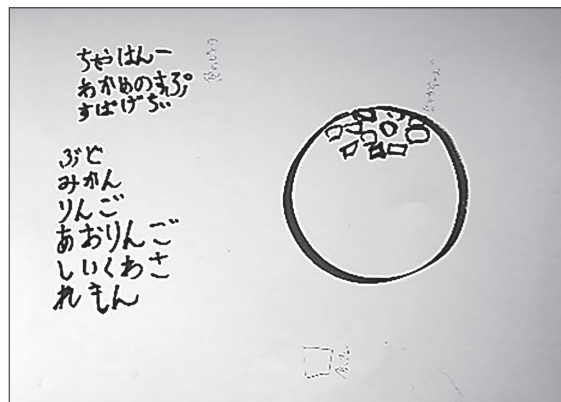 ちゃはんー
わかめのすぷ
すぱげちい
ぶど
みかん
りんご
あおりんご
しいくわさ
れもん